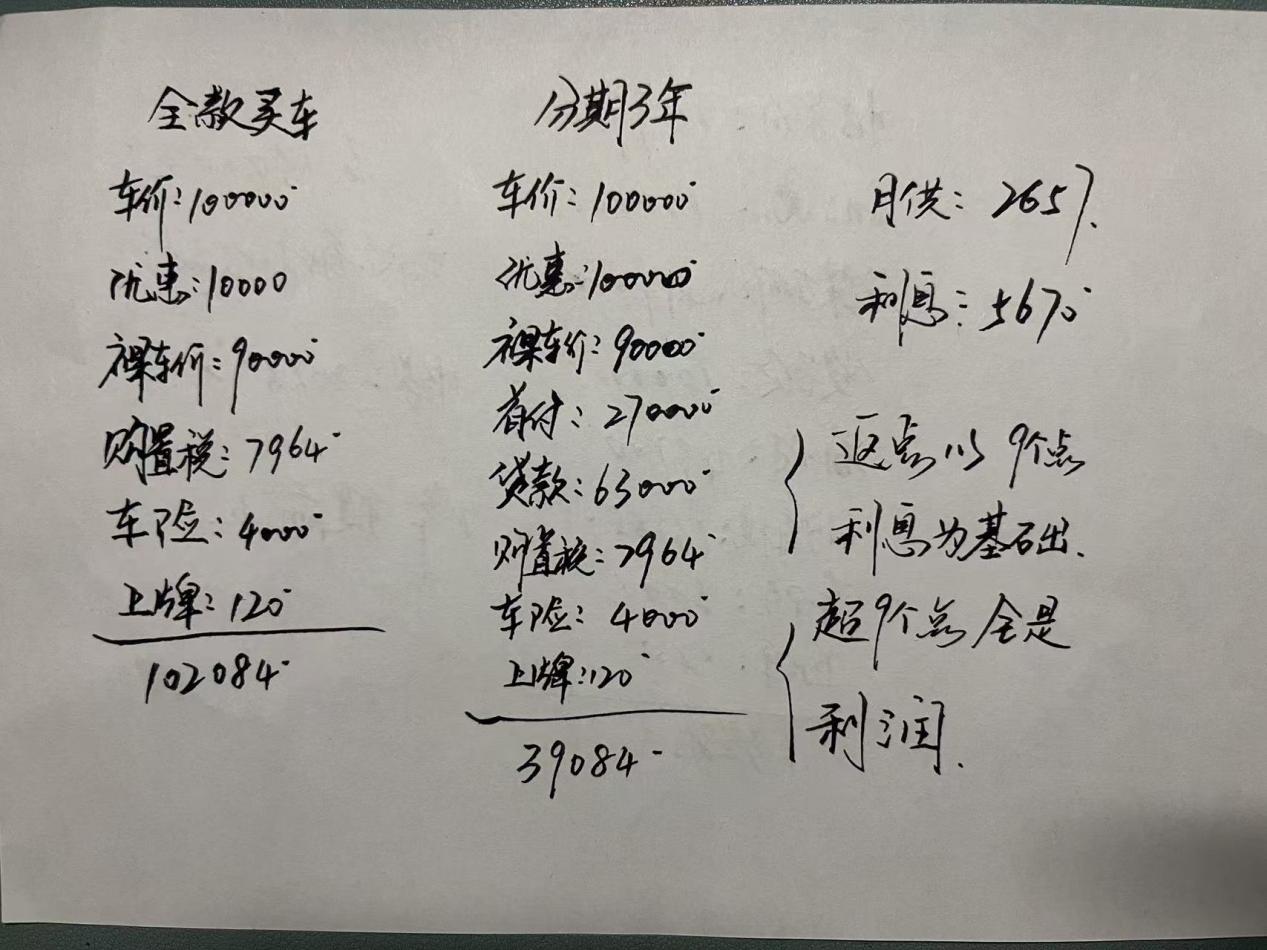 全款买车
车价:100000
优惠:10000
裸车价:90000
购置税:7964
车险:4000
上牌:120
102084
分期3年
车价:100000
优惠:10000
裸车价:90000
首付:27000
贷款:63000
购置税:7964
车险:4000
上牌:120
39084
月供:2657.
利息:5670
返点以9个点
利息为基础.
超9个点全是
利润.